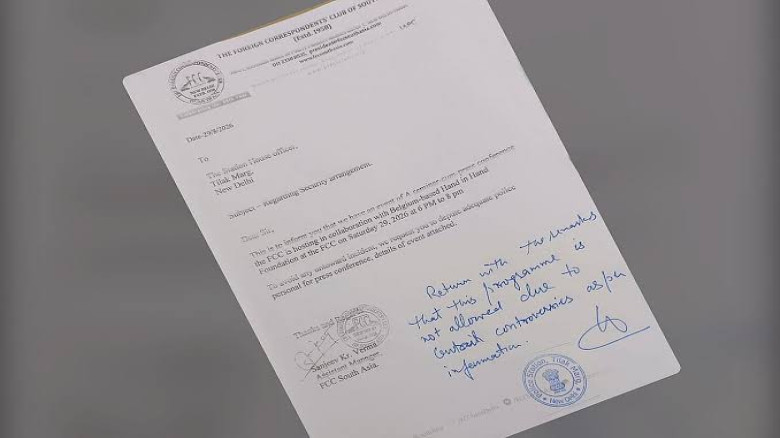 THE FOREIGN CORRESPONDENTS' CLUB OF SOUT
[Estd. 1958]
NEW DELHI
Date-29/8/2026
To
The Station House officer,
Tilak Marg,
New Delhi
Subject – Regarding Security arrangement.
Dear Sir,
This is to inform you that we have an event of A seminar-cum-press conference
the FCC is hosting in collaboration with Belgium-based Hand in Hand
Foundation at the FCC on Saturday 29, 2026 at 6 PM to 8 pm
To avoid any untoward incident, we request you to depute adequate police
personal for press conference, details of event attached.
Thanks and
Sanjeev Kr. Verma
Assistant Manager
FCC South Asia.
Return with the remarks
that this programme is
not allowed due to
controversies as per
information.
Police Station, Tilak Marg,
New Delhi